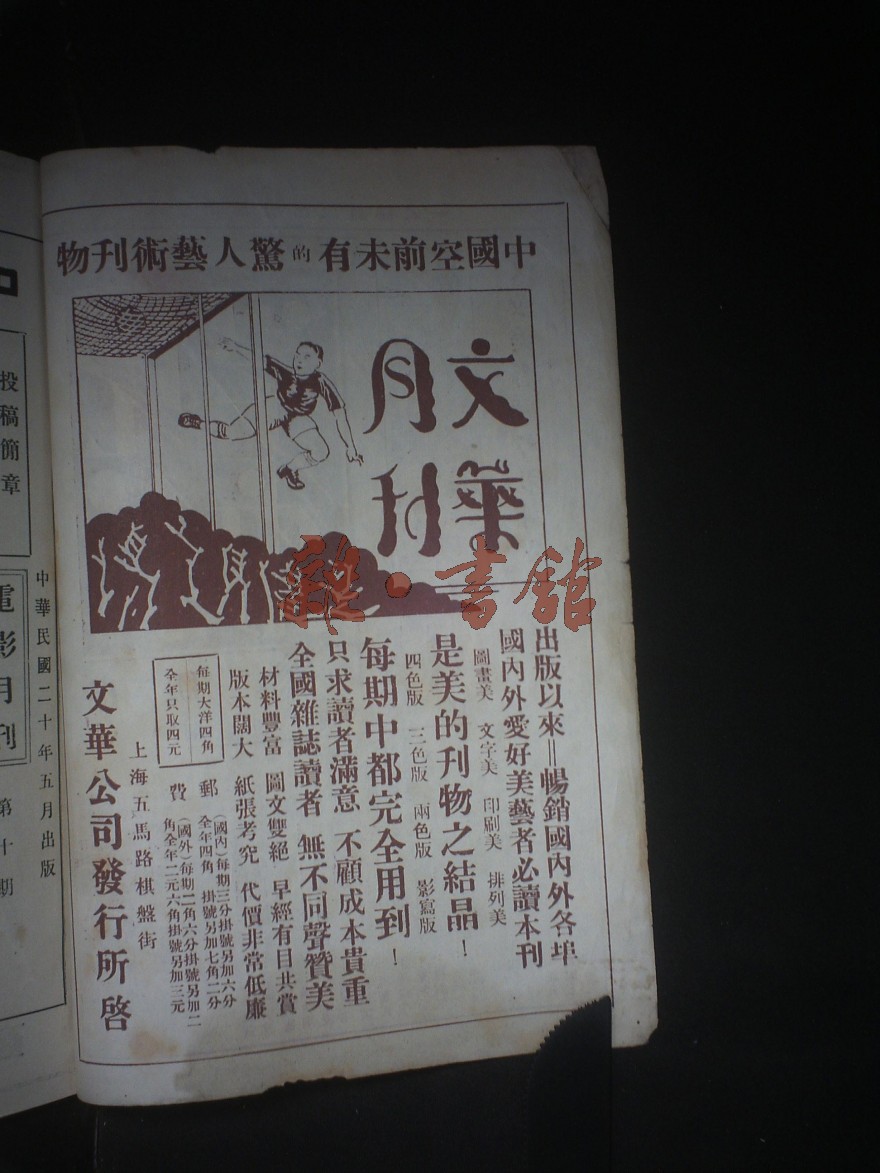 中國空前未有的驚人藝術刊物
文華
月刊
出版以來＝暢銷國內外各埠
國內外愛好美藝者必讀本刊
圖畫美 文字美 印刷美 排列美
是美的刊物之結晶！
四色版 三色版 兩色版 影寫版
每期中都完全用到！
只求讀者滿意 不顧成本貴重
全國雜誌讀者 無不同聲贊美
材料豐富 圖文雙絕 早經有目共賞
版本闊大 紙張考究 代價非常低廉
每期大洋四角
全年只取四元
郵費
(國內)每期三分掛號另加六分
全年四角 掛號另加七角二分
(國外)每期二角六分掛號另加二
角全年二元六角掛號另加三元
上海五馬路棋盤街
文華公司發行所啓
雜·書館
投稿簡章
中華民國二十年五月出版
電影月刊
第十期